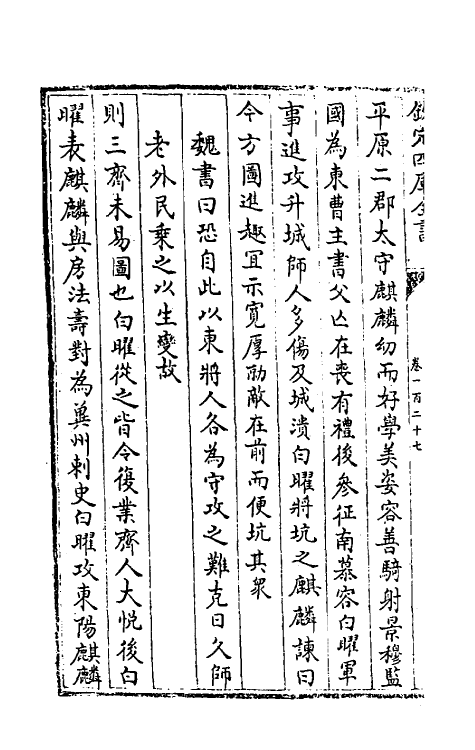 欽定四庫全書
卷一百二十七
平原二郡太守麒麟幼而好學美姿容善騎射景穆監
國為東曹主書父亡在喪有禮後參征南慕容白曜軍
事進攻升城師人多傷及城潰白曜將坑之麒麟諫曰
今方圖進趣宜示寬厚勍敵在前而便坑其衆
魏書曰恐自此以東將人各為守攻之難克日久師
老外民乗之以生變故
則三齊未易圖也白曜從之皆令復業齊人大悅後白
曜表麒麟與房法壽對為冀州刺史白曜攻東陽麒麟